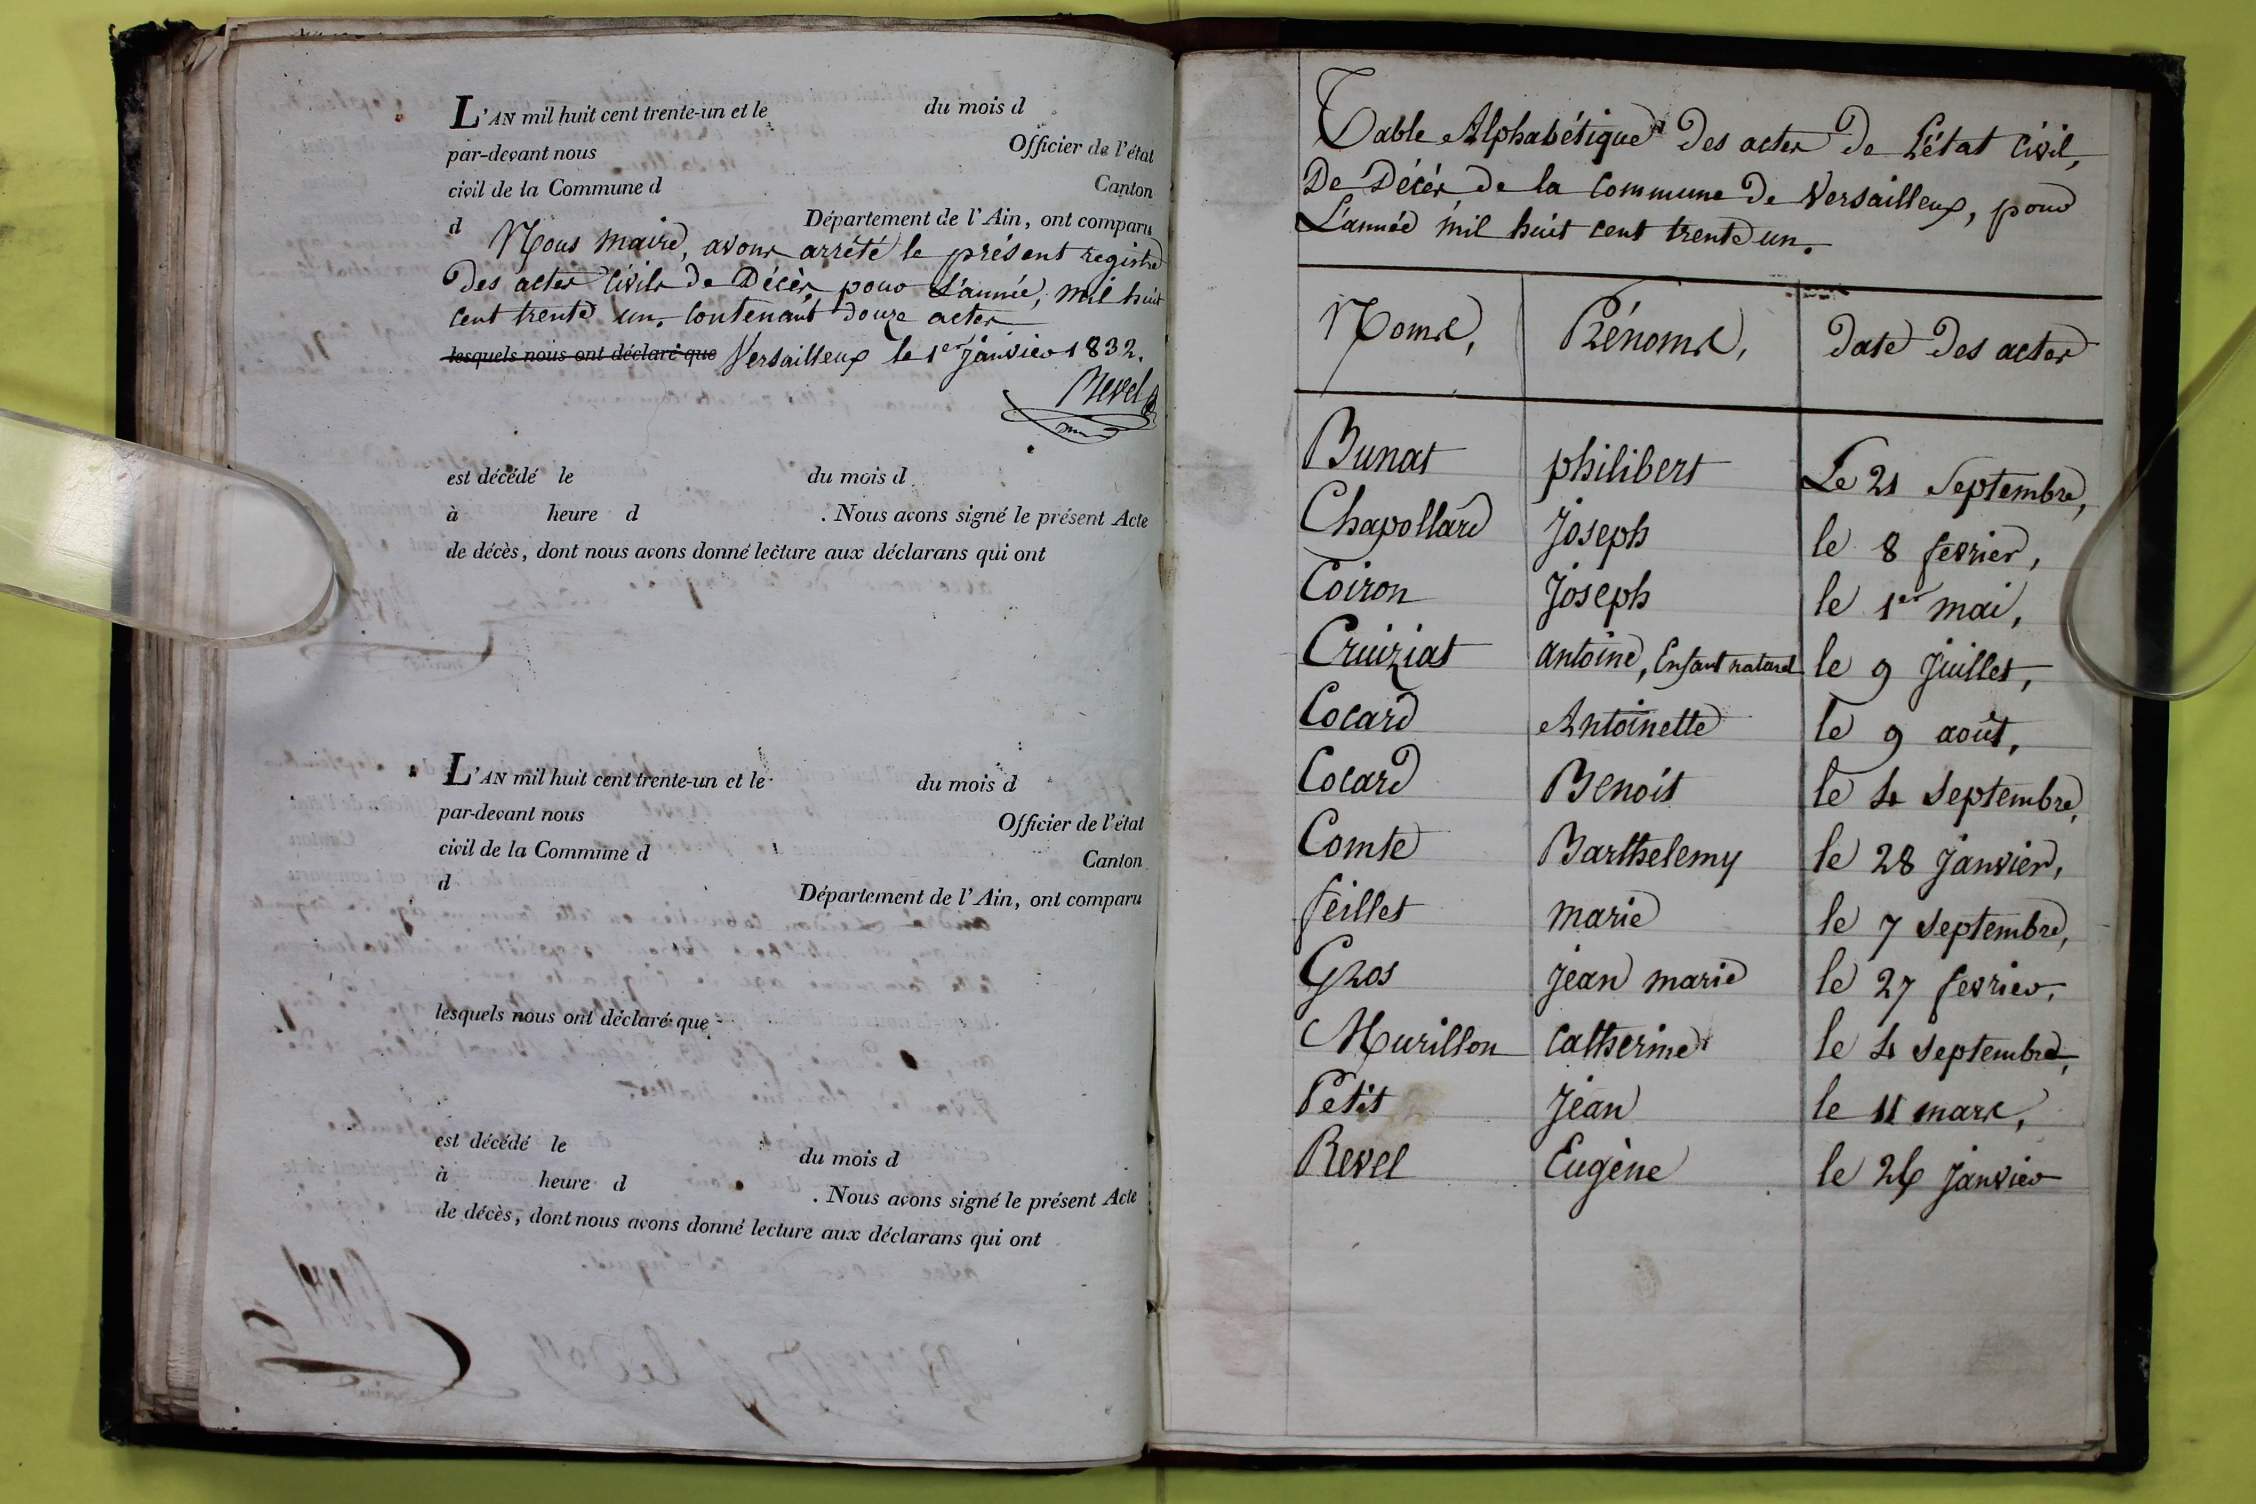 L'AN mil huit cent trente-un et le du mois d
par-devant nous Officier de l'état
civil de la Commune d Canton
d Département de l'Ain, ont comparu
Nous maire, avons arrêté le présent registre
des actes civils de Décès pour L'année, mil huit
cent trente un. Contenant douze actes
lesquels nous ont déclaré que Versailleux le 1er Janvier 1832.
Revel
est décédé le du mois d
à heure d . Nous avons signé le présent Acte
de décès, dont nous avons donné lecture aux déclarans qui ont
L'AN mil huit cent trente-un et le du mois d
par-devant nous Officier de l'état
civil de la Commune d Canton
d Département de l'Ain, ont comparu
lesquels nous ont déclaré que
est décédé le du mois d
à heure d . Nous avons signé le présent Acte
de décès, dont nous avons donné lecture aux déclarans qui ont
Table Alphabétique des actes de L'état Civil,
De Décès, de la commune de Versailleux, pour
L'année mil huit cent trente un.
Noms, Prénoms, date des actes
Bunat philibert Le 21 Septembre,
Chapollard Joseph le 8 fevrier,
Coiron Joseph le 1er mai,
Cruiziat antoine, Enfant naturel le 9 Juillet,
Cocard Antoinette le 9 août,
Cocard Benoit le 4 Septembre,
Comte Barthelemy le 28 Janvier,
feillet marie le 7 Septembre,
Gros jean marie le 27 fevrier,
Murillon Catherine le 4 Septembre,
Petit Jean le 11 mars,
Revel Eugène le 26 Janvier